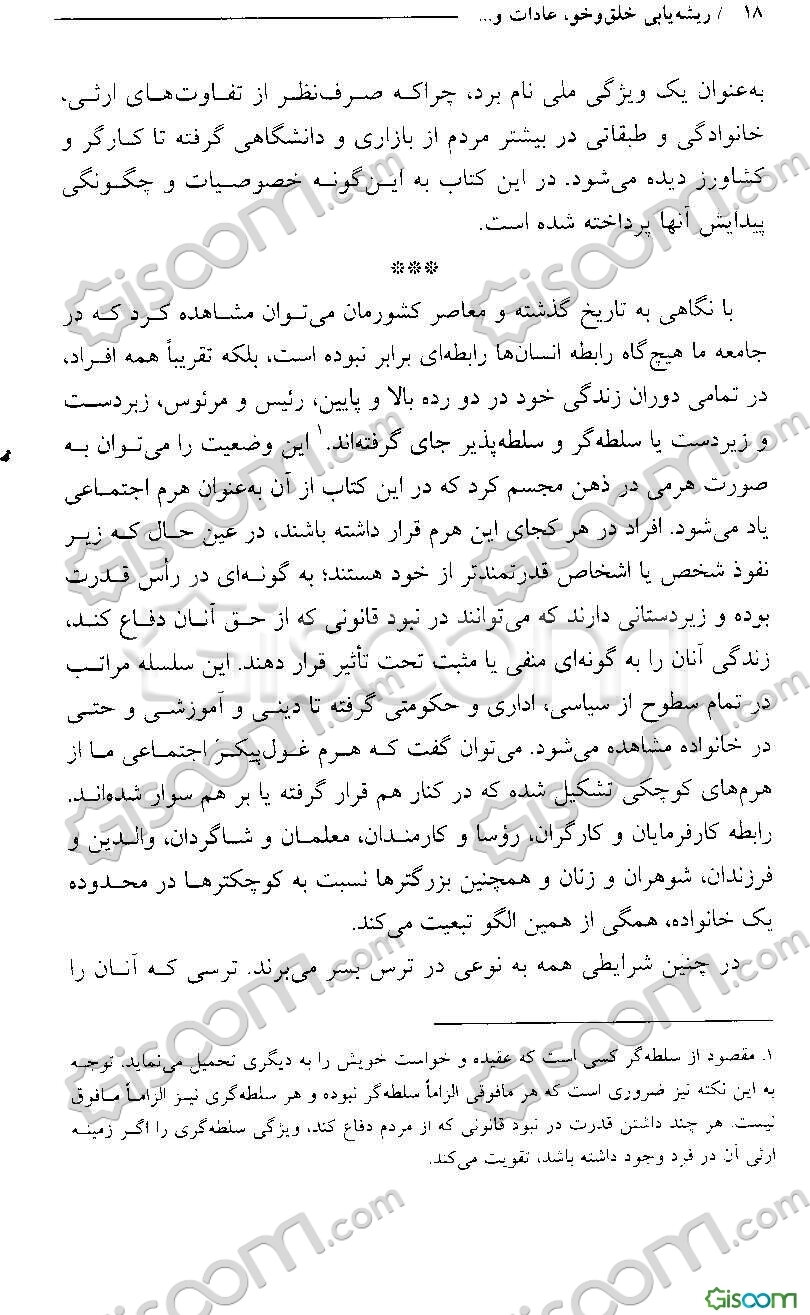 ۱۸ / ریشه‌یابی خلق‌وخو، عادات و...
به‌عنوان یک ویژگی ملی نام برد، چراکه صرف‌نظر از تفاوت‌های ارثی،
خانوادگی و طبقاتی در بیشتر مردم از بازاری و دانشگاهی گرفته تا کارگر و
کشاورز دیده می‌شود. در این کتاب به این‌گونه خصوصیات و چگونگی
پیدایش آنها پرداخته شده است.
***
با نگاهی به تاریخ گذشته و معاصر کشورمان می‌توان مشاهده کرد که در
جامعه ما هیچ‌گاه رابطه انسان‌ها رابطه‌ای برابر نبوده است، بلکه تقریباً همه افراد،
در تمامی دوران زندگی خود در دو رده بالا و پایین، رئیس و مرئوس، زبردست
و زیردست یا سلطه‌گر و سلطه‌پذیر جای گرفته‌اند.۱ این وضعیت را می‌توان به
صورت هرمی در ذهن مجسم کرد که در این کتاب از آن به‌عنوان هرم اجتماعی
یاد می‌شود. افراد در هر کجای این هرم قرار داشته باشند، در عین حال که زیر
نفوذ شخص یا اشخاص قدرتمندتر از خود هستند؛ به گونه‌ای در رأس قدرت
بوده و زیردستانی دارند که می‌توانند در نبود قانونی که از حق آنان دفاع کند،
زندگی آنان را به گونه‌ای منفی یا مثبت تحت تأثیر قرار دهند. این سلسله مراتب
در تمام سطوح از سیاسی، اداری و حکومتی گرفته تا دینی و آموزشی و حتی
در خانواده مشاهده می‌شود. می‌توان گفت که هرم غول‌پیکر اجتماعی ما از
هرم‌های کوچکی تشکیل شده که در کنار هم قرار گرفته یا بر هم سوار شده‌اند.
رابطه کارفرمایان و کارگران، رؤسا و کارمندان، معلمان و شاگردان، والدین و
فرزندان، شوهران و زنان و همچنین بزرگترها نسبت به کوچکترها در محدوده
یک خانواده، همگی از همین الگو تبعیت می‌کند.
در چنین شرایطی همه به نوعی در ترس بسر می‌برند. ترسی که آنان را
۱. مقصود از سلطه‌گر کسی است که عقیده و خواست خویش را به دیگری تحمیل می‌نماید. توجه
به این نکته نیز ضروری است که هر مافوقی الزاماً سلطه‌گر نبوده و هر سلطه‌گری نیز الزاماً مافوق
نیست. هر چند داشتن قدرت در نبود قانونی که از مردم دفاع کند، ویژگی سلطه‌گری را اگر زمینه
ارثی آن در فرد وجود داشته باشد، تقویت می‌کند.
Gisoom.com
Gisoom.com
Gisoom.com
Gisoom.com
Gisoom.com
Gisoom.com
Gisoom.com
Gisoom.com
Gisoom.com
Gisoom.com
Gisoom
Gisoom